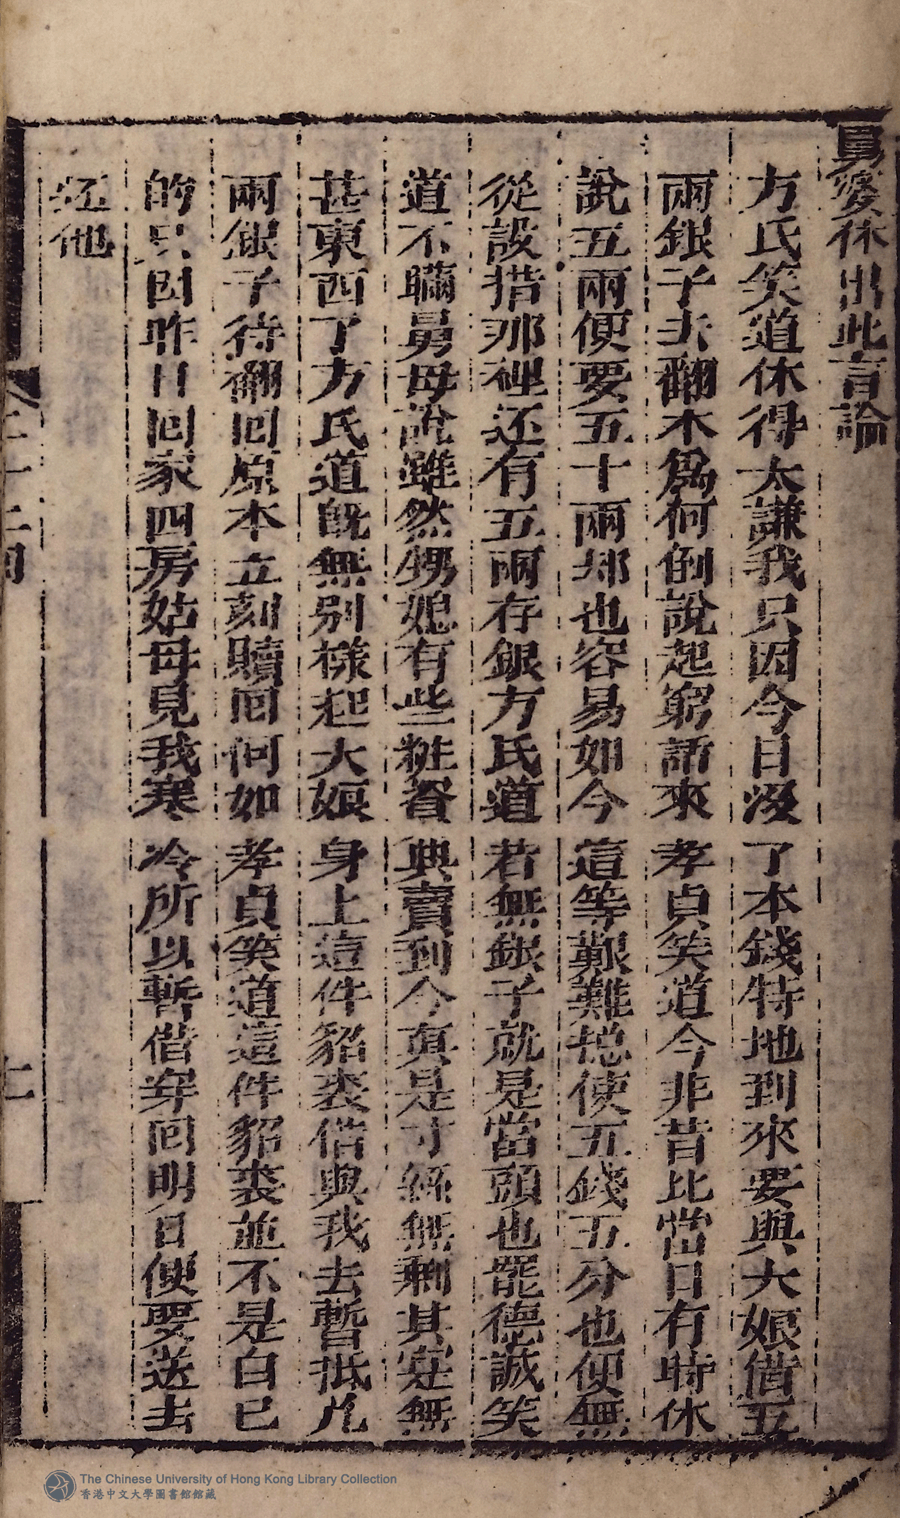 舅婆休出此言論
方氏笑道休得太謙我只因今日沒了本錢特地到來要與大娘借五
兩銀子去翻本爲何倒說起窮話來孝貞笑道今非昔比當日有時休
說五兩便要五十兩却也容易如今這等艱難總使五錢五分也便無
從設措那裡还有五兩存銀方氏道若無銀子就是當頭也罷德誠笑
道不瞞舅母說雖然甥媳有些粧奩典賣到今真是寸絲無剩其寔無
甚東西了方氏道旣無别様起大娘身上這件貂裘借與我去暫抵几
兩銀子待翻囘原本立刻贖囘何如孝貞笑道這件貂裘並不是自己
的只因昨日囘家四房姑母見我寒冷所以暫借穿囘明日便要送去
还他
二十二囘
七
The Chinese University of Hong Kong Library Collection
香港中文大學圖書館館藏